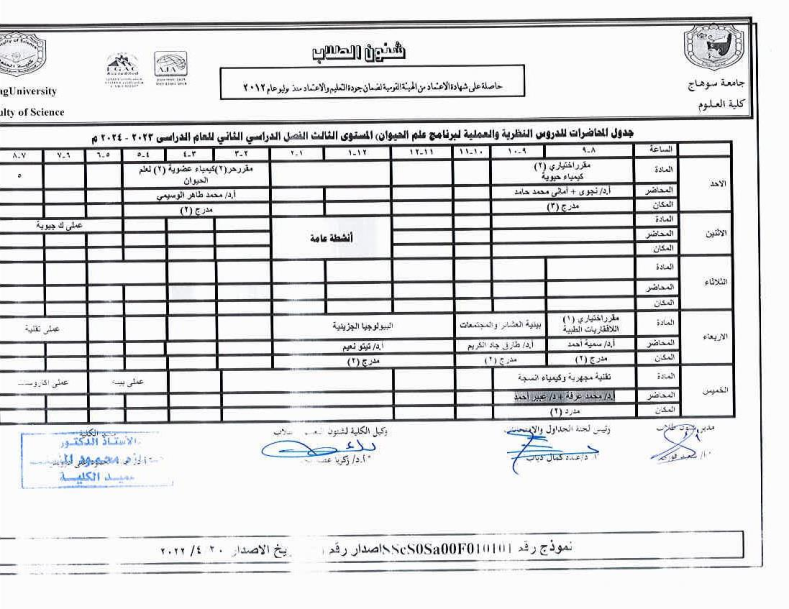 شئون الطلاب
حاصلة على شهادة الاعتماد من الهيئة القومية لضمان جودة التعليم والاعتماد منذ يوليو عام ٢٠١٢
جامعة سوهاج
كلية العلوم
agUniversity
ulty of Science
جدول المحاضرات للدروس النظرية والعملية لبرنامج علم الحيوان) المستوى الثالث الفصل الدراسي الثاني للعام الدراسي ٢٠٢٣ - ٢٠٢٤ م
الساعة ٩-٨ ١٠-٩ ١١-١٠ ١٢-١١ ١-١٢ ٢-١ ٣-٢ ٤-٣ ٥-٤ ٦-٥ ٧-٦ ٨-٧
الاحد
المادة مقرر اختياري (٢) كيمياء حيوية مقرر حر(٢)كيمياء عضوية (٢) لعلم الحيوان
المحاضر أ.د/ نجوى + أمانى محمد حامد أ.د/ محمد طاهر الوسيمي
المكان مدرج (٣) مدرج (٢)
الاثنين
المادة عملى ك حيوية
المحاضر أنشطة عامة
المكان
الثلاثاء
المادة
المحاضر
المكان
الاربعاء
المادة مقرر اختياري (١) اللافقاريات الطبية بيئية العشائر والمجتمعات البيولوجيا الجزيئية عملى تقنية
المحاضر أ.د/ سمية أحمد أ.د/ طارق جاد الكريم أ.د/ تيتو نعيم
المكان مدرج (٢) مدرج (٢) مدرج (٢)
الخميس
المادة تقنية مجهرية وكيمياء انسجة عملى بيئة
المحاضر أ.د/ محمد عرفة + د/ عبير أحمد
المكان مدرد (٢)
رئيس لجنة الجداول
وكيل الكلية لشئون
أ.د/ عبده كمال دياب
أ.د/ زكريا
الأستاذ الدكتور
عميد الكلية
نموذج رقم SScS0Sa00F010101 اصدار رقم